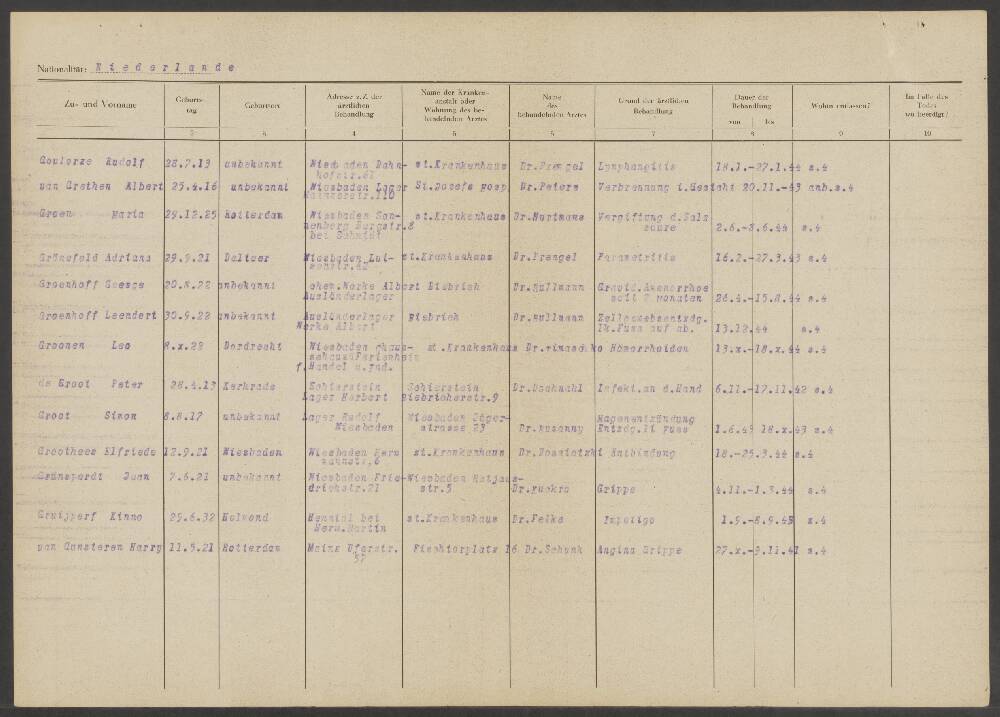 Nationalität: Niederlande
Zu- und Vorname | Geburts-tag | Geburtsort | Adresse z.Z. der ärztlichen Behandlung | Name der Kranken-anstalt oder Wohnung des be-handelnden Arztes | Name des behandelnden Arztes | Grund der ärztlichen Behandlung | Dauer der Behandlung von bis | Wohin entlassen? | Im Falle des Todes wo beerdigt?
2 3 4 5 6 7 8 9 10
Goulorze Rudolf 28.7.13 unbekannt Wiesbaden Bahn- st.Krankenhaus Dr.Prengel Lymphangitis 18.1.-27.1.44 s.4
hofstr.61
van Grethen Albert 25.4.16 unbekannt Wiesbaden Lager St.Josefs hosp. Dr.Peters Verbrennung i.Gesicht 20.11.-43 amb.s.4
Mainzerstr.110
Groen Maria 29.12.25 Rotterdam Wiesbaden Son- st.Krankenhaus Dr.Hartmann Vergiftung d.Salz
nenberg Burgstr.8 säure 2.6.-8.6.44 s.4
bei Schmidt
Grünefeld Adriana 29.9.21 Wiesbaden Lui- st.Krankenhaus Dr.Prengel Parametritis 16.2.-27.3.43 s.4
senstr.42
Groenhoff 20.8.22 unbekannt chem.Werke Albert Biebrich Dr.Hullmann Gravid.Amenorrhoe
Ausländerlager seit 2 monaten 26.4.-15.8.44 s.4
Groenhoff Leendert 30.9.22 unbekannt Ausländerlager Biebrich Dr.Hullmann
Werke Albert lk.Fuss auf ab. 13.12.44 s.4
Groenen Leo 8.x.22 Dordrecht Wiesbaden st.Krankenhaus Hämorrhoiden 13.x.-18.x.44 s.4
f.Handel u.
de Groot Peter 28.4.13 Kerkrade Schierstein Schierstein Infekt.an d.Hand 6.11.-17.11.42 s.4
Lager Herbert Biebricherstr.9
Groot Simon 8.8.17 unbekannt Lager Rudolf Wiesbaden Jäger- Magenentzündung
Wiesbaden strasse 23 Dr.Kusanny Entzdg.li Fuss 1.6.43 18.x.43 s.4
Groothees Elfriede 12.9.21 Wiesbaden Wiesbaden Herm st.Krankenhaus Entbindung 18.-25.3.44 s.4
annstr.6
Grünsperdt Juan 7.6.21 unbekannt Wiesbaden Frie- Wiesbaden
drichstr.21 str.5 Grippe 4.11.-1.3.44 s.4
Gruijperf Kinne 29.6.32 Helmond bei st.Krankenhaus Dr.Felke Impetigo 1.9.-8.9.43 s.4
Herm.Martin
van Gunsteren Harry 11.5.21 Rotterdam Mainz Uferstr. Fischtorplatz 16 Dr.Schunk Angina Grippe 27.x.-9.11.41 s.4
57